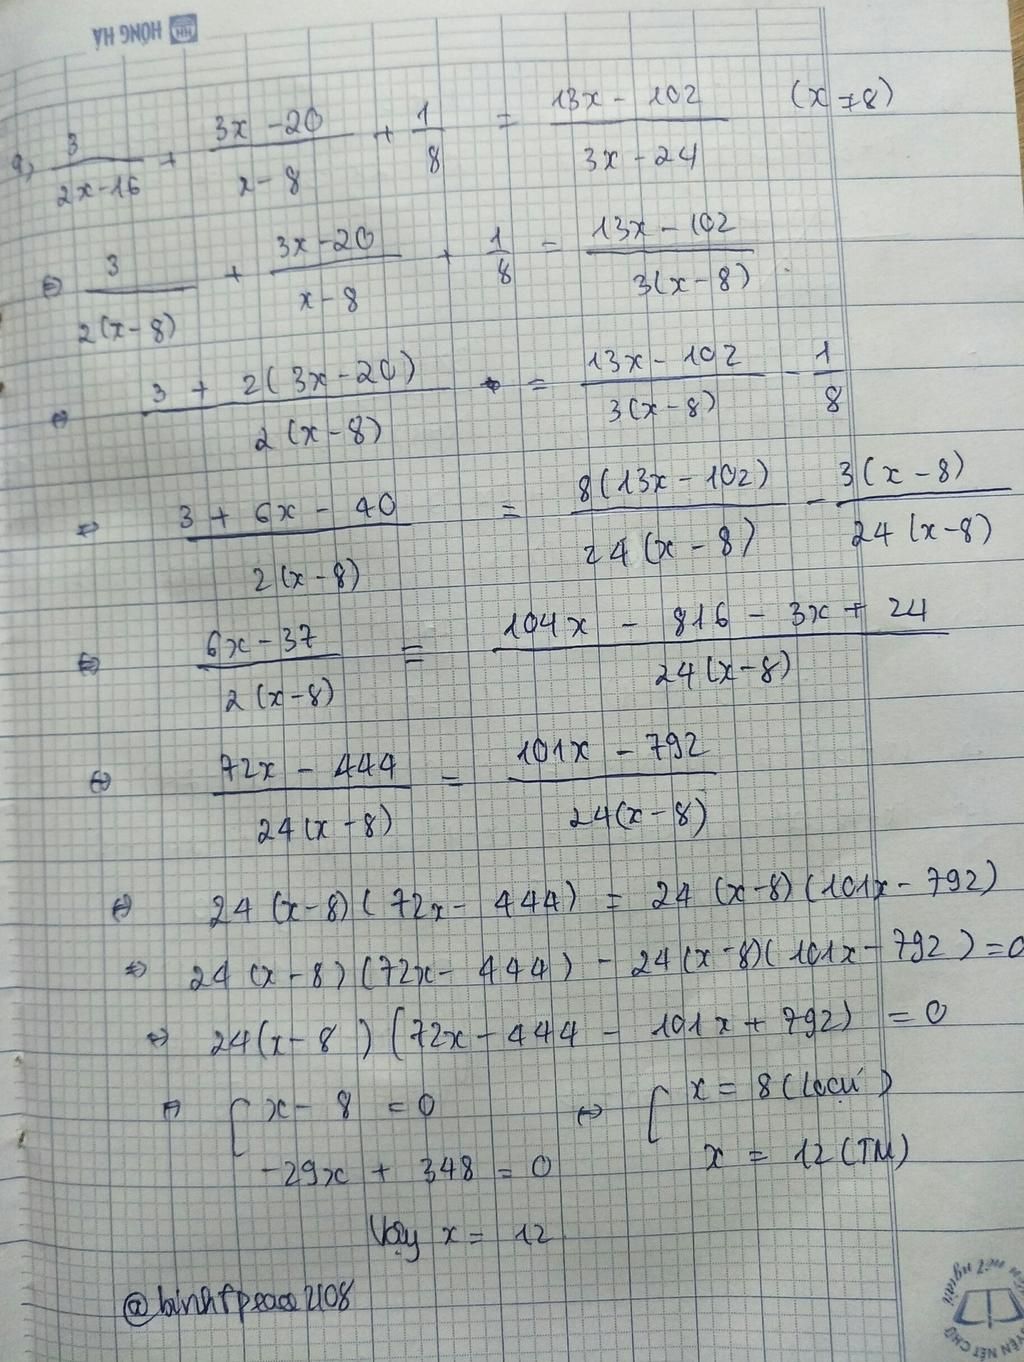 HỒNG HÀ
a, 3/(2x-16) + (3x-20)/(x-8) + 1/8 = (13x-102)/(3x-24) (x ≠ 8)
⇔ 3/(2(x-8)) + (3x-20)/(x-8) + 1/8 = (13x-102)/(3(x-8))
⇔ (3 + 2(3x-20))/(2(x-8)) = (13x-102)/(3(x-8)) - 1/8
⇔ (3 + 6x - 40)/(2(x-8)) = (8(13x-102))/(24(x-8)) - (3(x-8))/(24(x-8))
⇔ (6x-37)/(2(x-8)) = (104x - 816 - 3x + 24)/(24(x-8))
⇔ (72x - 444)/(24(x-8)) = (101x - 792)/(24(x-8))
⇔ 24(x-8)(72x - 444) = 24(x-8)(101x - 792)
⇔ 24(x-8)(72x - 444) - 24(x-8)(101x - 792) = 0
⇔ 24(x-8)(72x - 444 - 101x + 792) = 0
⇔ [ x - 8 = 0 ⇔ [ x = 8 (Loại)
-29x + 348 = 0 x = 12 (TM)
Vậy x = 12